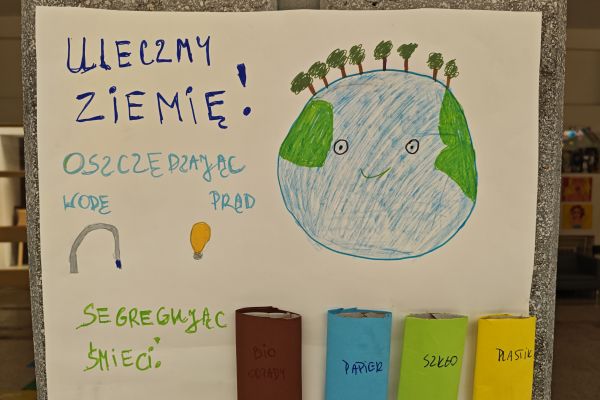 ULECZMY
ZIEMIĘ!
OSZCZĘDZAJĄC
WODĘ PRĄD
SEGREGUJĄC
ŚMIECI!
BIO
ODPADY
PAPIER
SZKŁO
PLASTIK